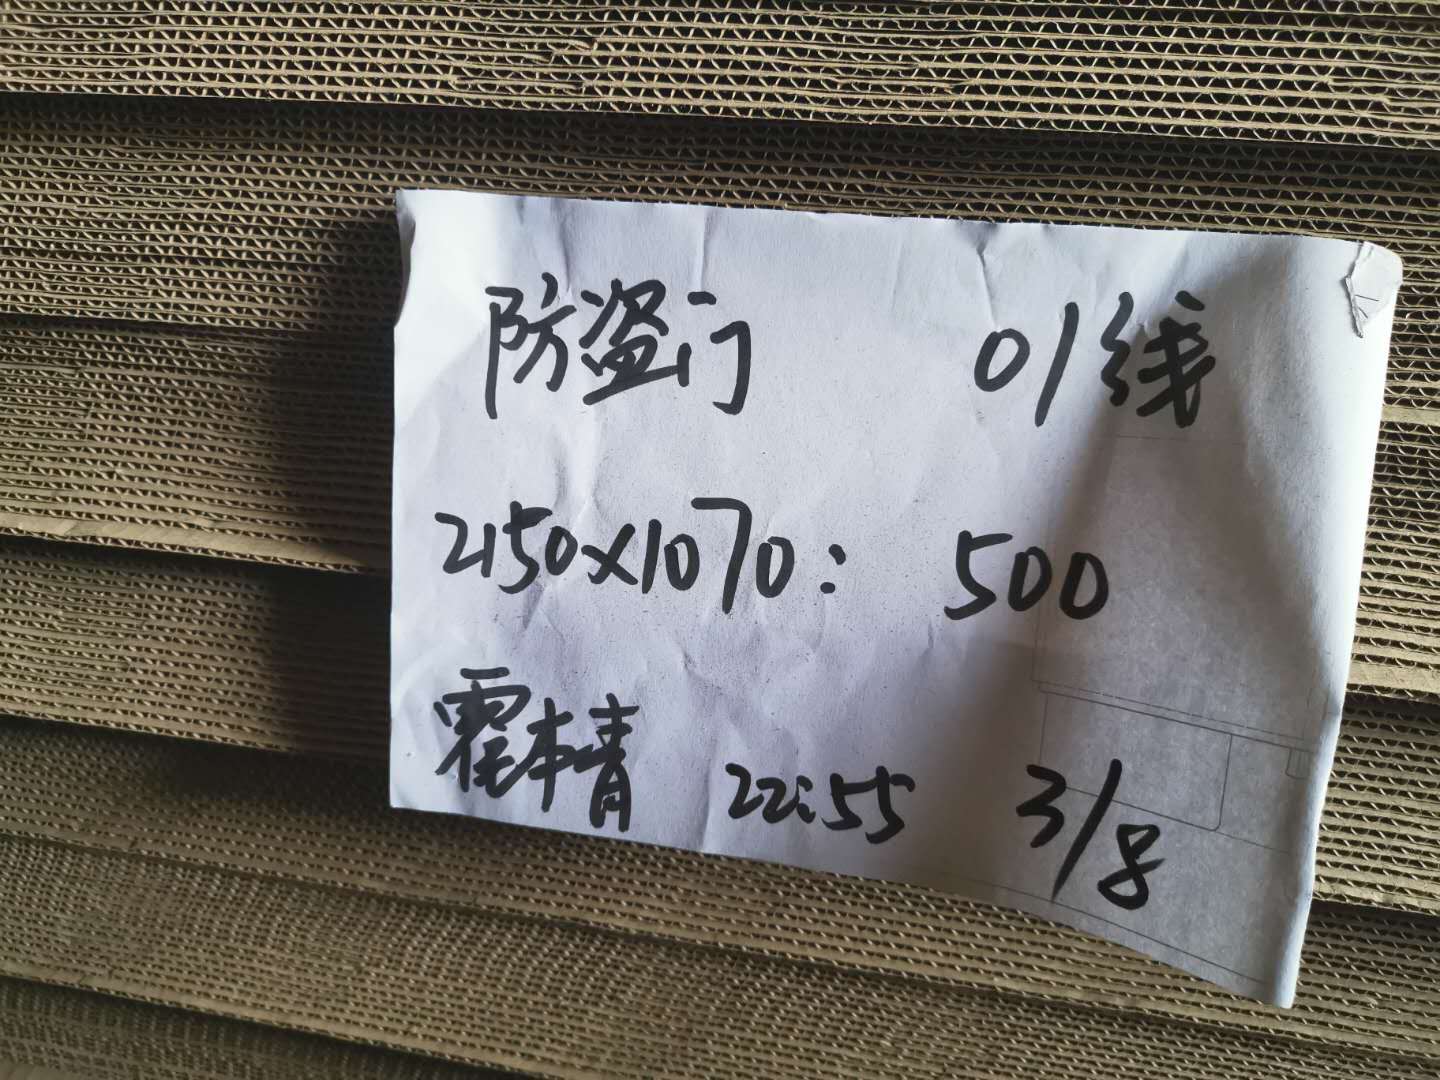 防盗门 01线
2150×1070: 500
霍本青 22:55 3/8